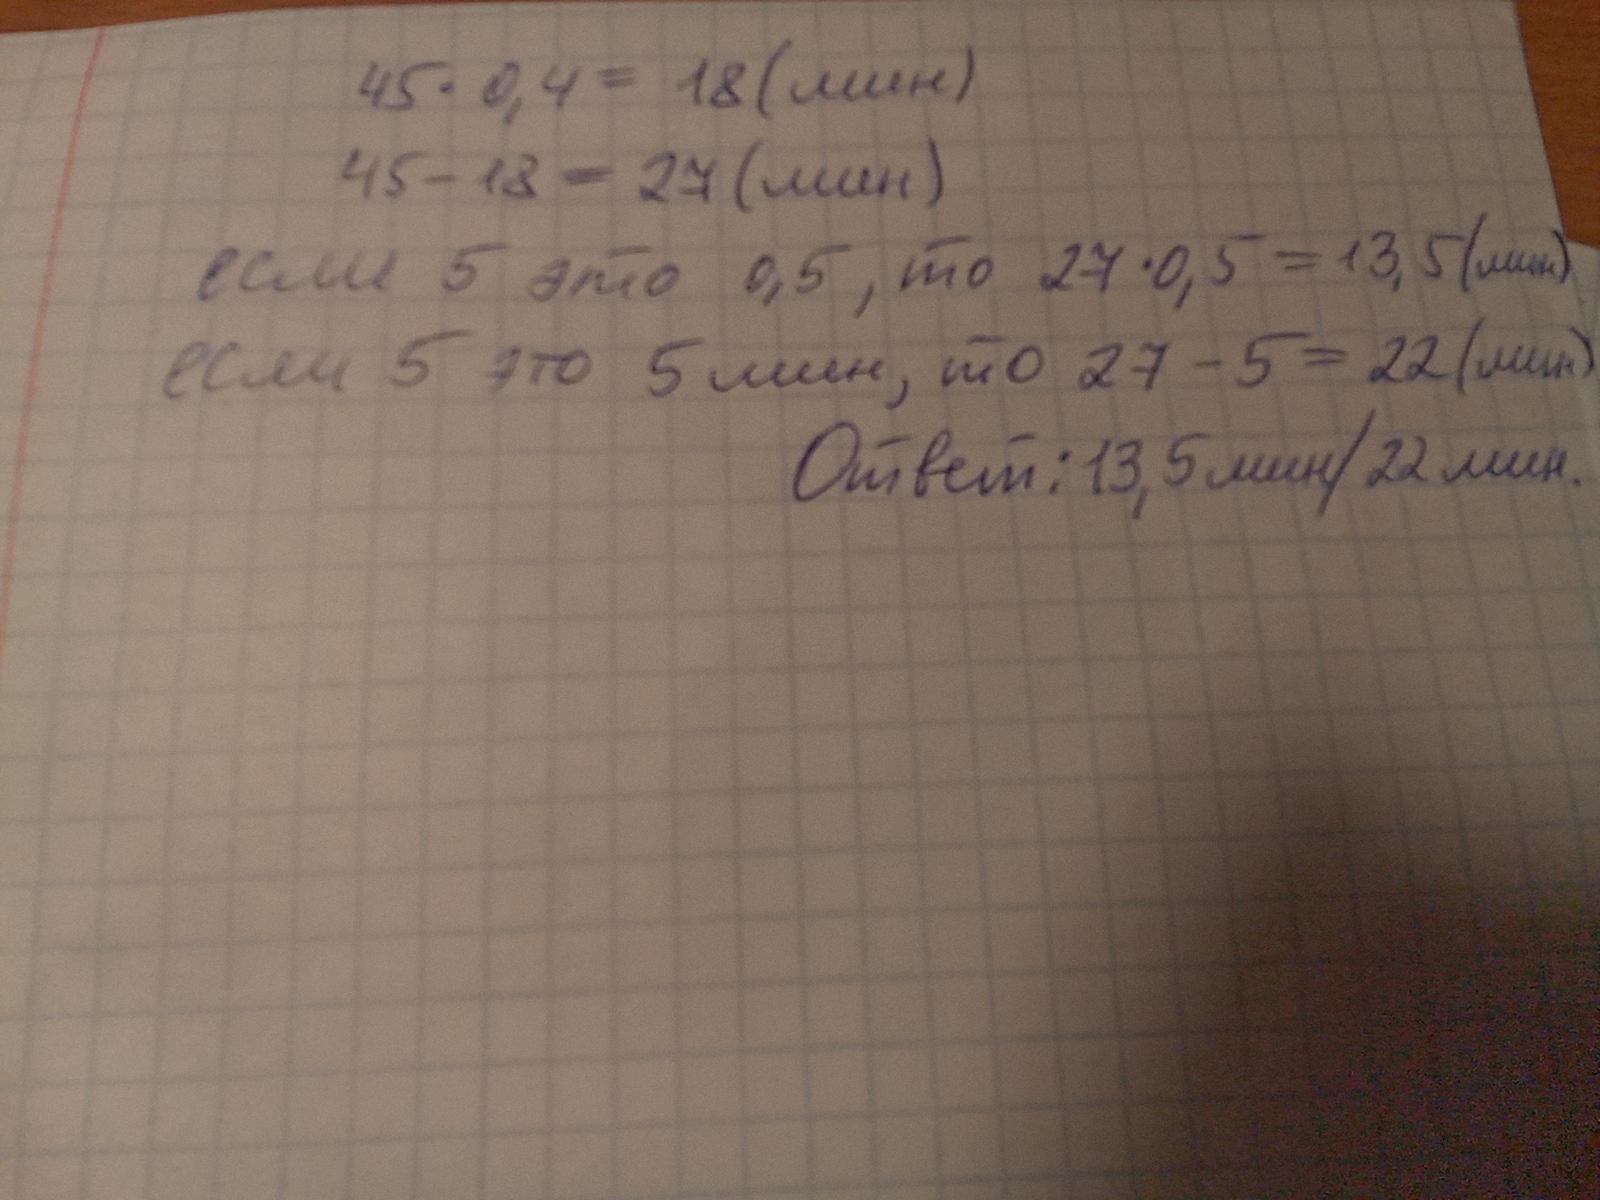 45·0,4=18(мин)
45-18=27(мин)
если 5 это 0,5, то 27·0,5=13,5(мин)
если 5 это 5 мин, то 27-5=22(мин)
Ответ: 13,5 мин/22 мин.